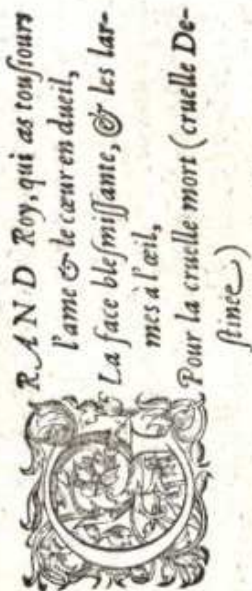 GRAND Roy, qui as touſiours
l'ame & le cœur en dueil,
La face bleſmiſſante, & les lar-
mes à l'œil,
Pour la cruelle mort (cruelle De-
ſtinee)